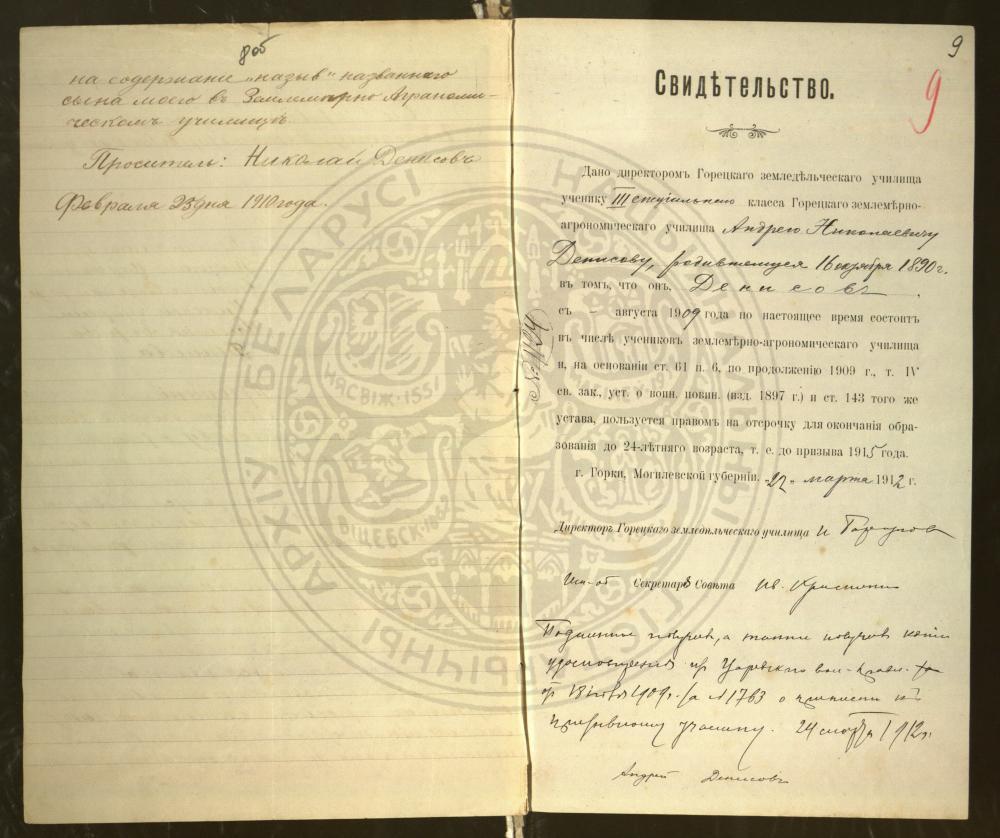 8 об
на содержание „назыв“ названнаго
сына моего въ Землемѣрно Аграноми-
ческомъ училищѣ.
Проситель: Николай Денисовъ
Февраля 23 дня 1910 года.
9
9
Свидѣтельство.
Дано директоромъ Горецкаго земледѣльческаго училища
ученику III спеціальнаго класса Горецкаго землемѣрно-
агрономическаго училища Андрею Николаевичу
Денисову, родившемуся 16 октября 1890 г.
въ томъ, что онъ, Денисовъ.
съ – августа 1909 года по настоящее время состоитъ
въ числѣ учениковъ землемѣрно-агрономическаго училища
и, на основаніи ст. 61 п. 6, по продолженію 1909 г., т. IV
св. зак., уст. о воин. повин. (изд. 1897 г.) и ст. 143 того же
устава, пользуется правомъ на отсрочку для окончанія обра-
зованія до 24-лѣтняго возраста, т. е. до призыва 1915 года.
г. Горки, Могилевской губерніи. „27„ марта 1912 г.
Директоръ Горецкаго земледѣльческаго училища И
Исп-об Секретаря Совѣта Ив.
Подлинное получ, а также получ копію
удостовѣренія
1909 г. за № 1763 о припискѣ къ
призывному участку. 24 1912 г.
Андрей Денисовъ
НАЦЫЯНАЛЬНЫ ГІСТАРЫЧНЫ АРХІЎ БЕЛАРУСІ